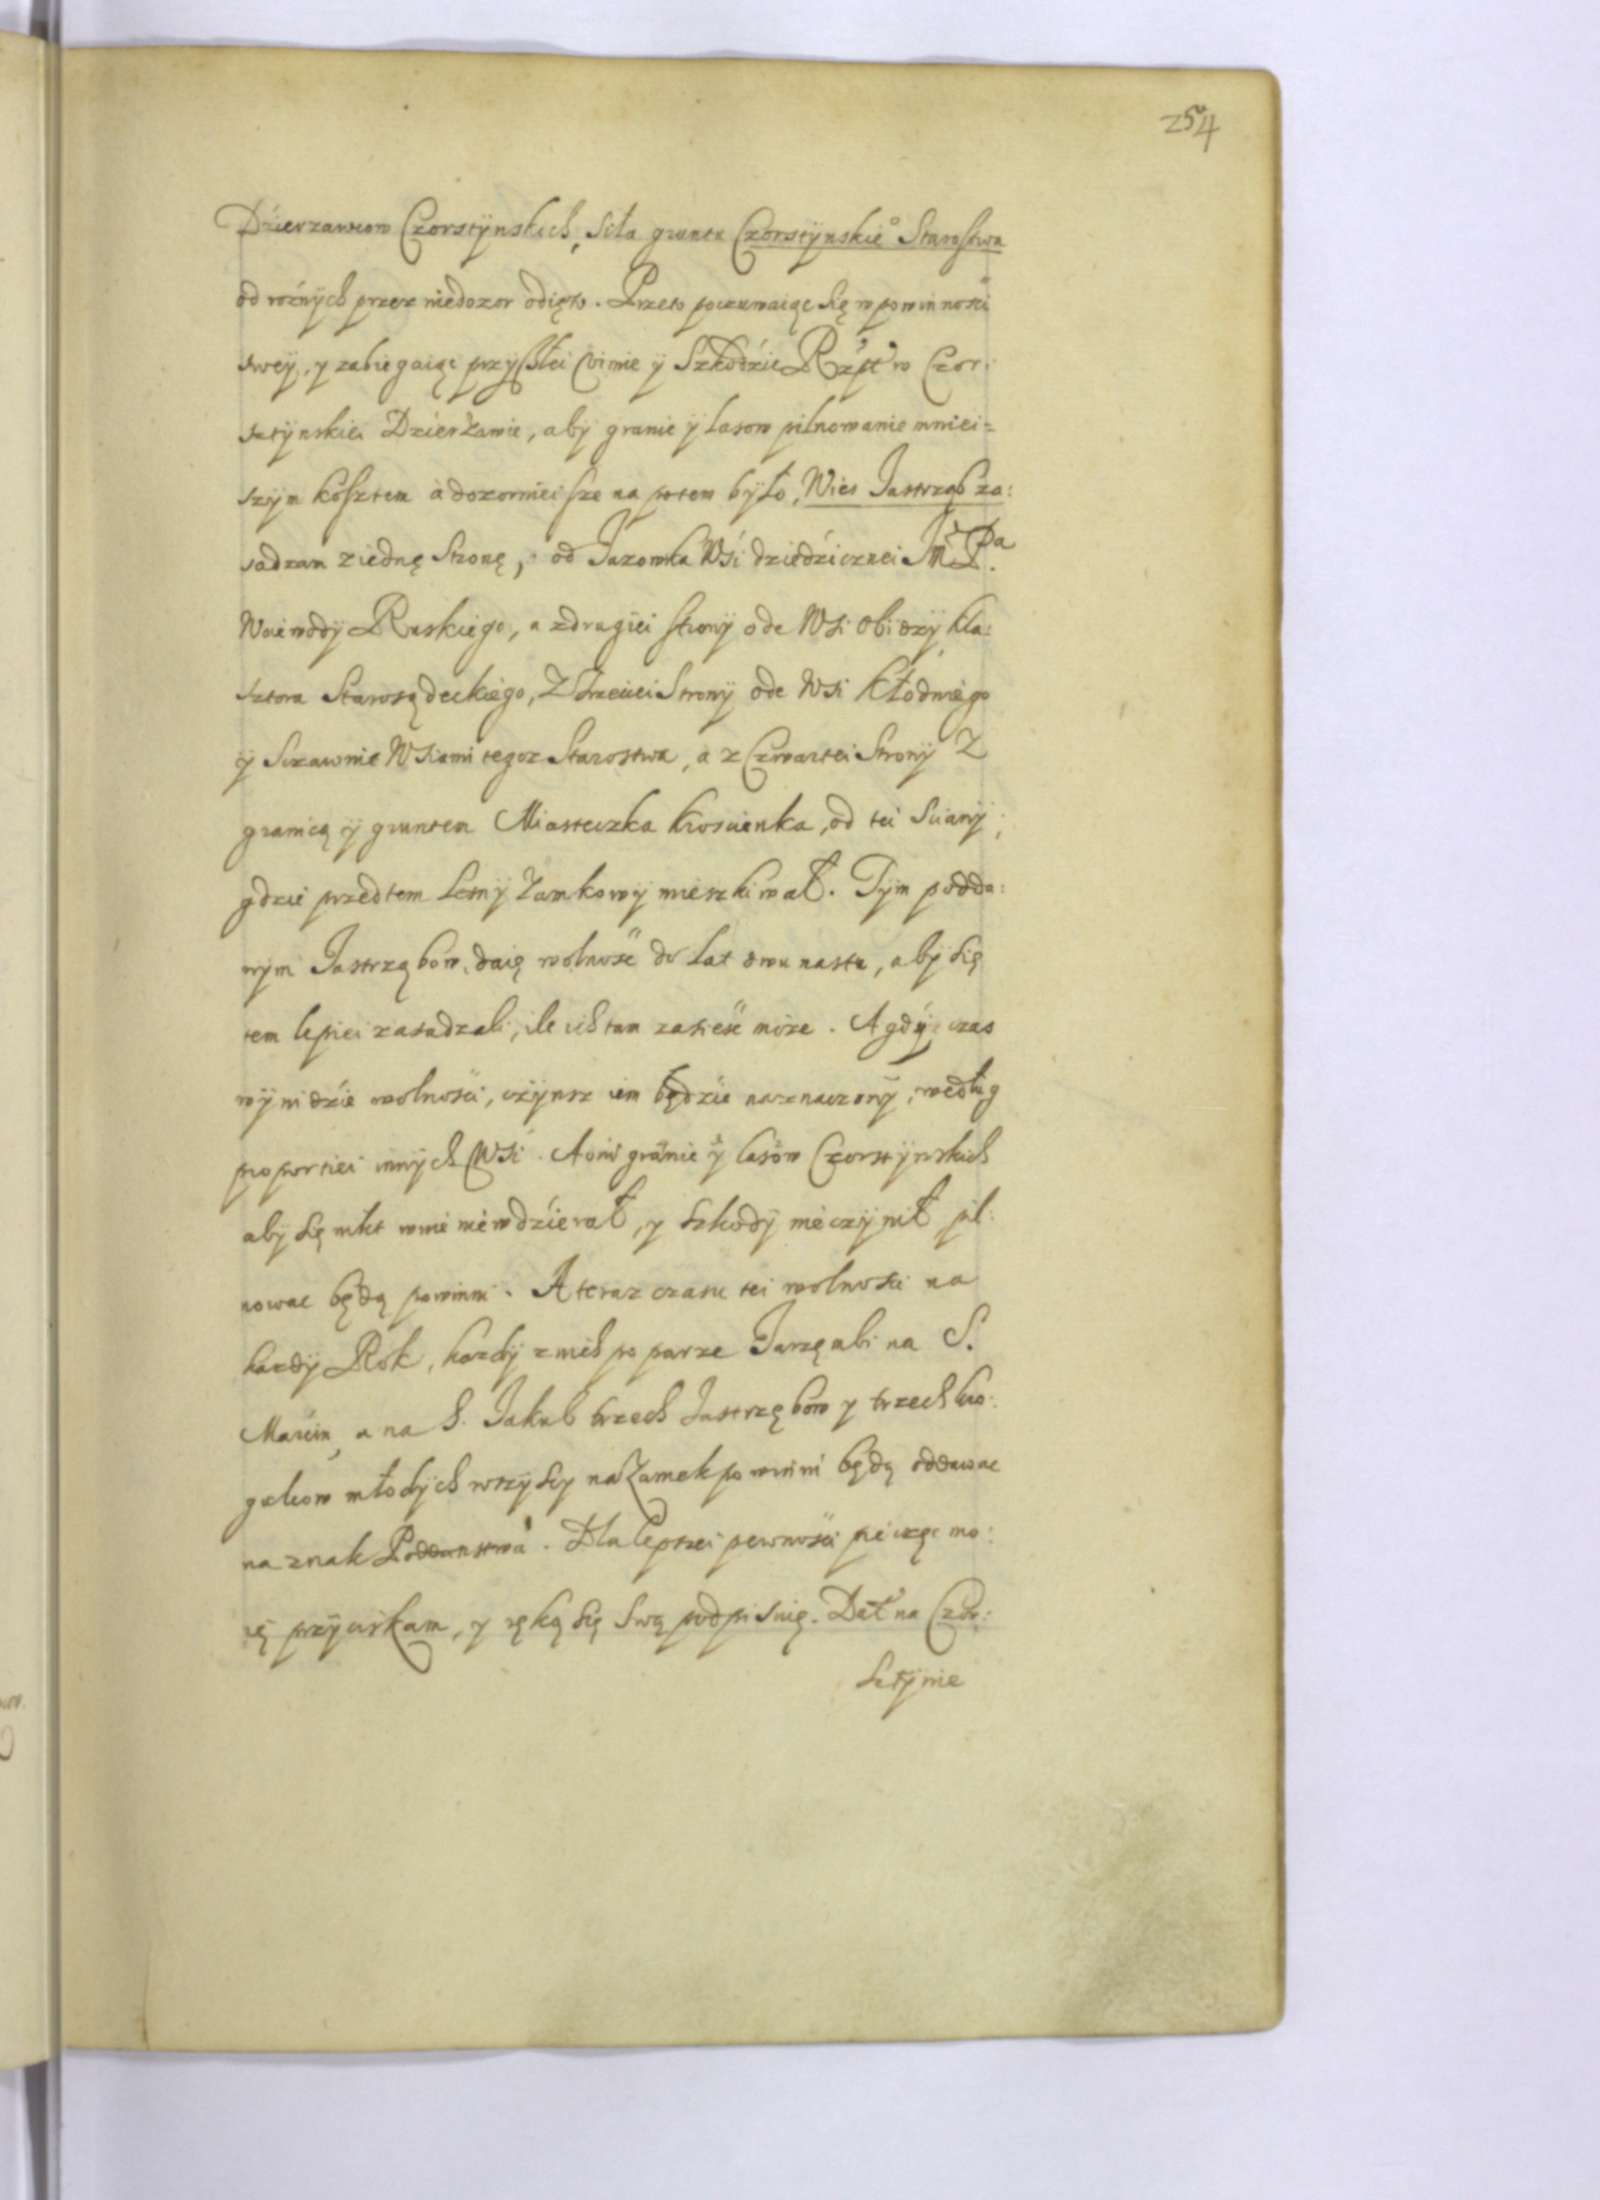 254
Dzierzawcow Czorstÿnskich, siła gruntu Czorstÿnskieº Starostwa
od rożnÿch przez niedozor odięto. Przeto poczuwaiąc się w powinnosci
swey, y zabiegaiąc przyszłei winie ÿ Szkodzie Rzpt w Czor:
sztÿnskiei Dzierżawie, abÿ granic ÿ lasow pilnowanie mniei=
szÿm kosztem à dozorniei sze na potem bÿło, Wies Jastrząb za:
sadzam z iednę Stronę, od Jazowka Wśi dziedźicznei Jm̃ Pa
Woiewodÿ Ruskiego, a z drugiei stronÿ ode Wsi obidzÿ kla:
sztora Starosądeckiego, Z Trzeciei Stronÿ ode Wsi kłodniego
ÿ Sczawnie Wsiami tegoz Starostwa, a z Czwartei Stronÿ Z
granicą ÿ gruntem Miasteczka kroscienka, od tei Scianÿ;
gdzie przedtem Lesnÿ Zamkowÿ mieszkiwał. Tÿm podda:
nym Jastrząbow, daię wolnosć do lat dwunastu, abÿ się
tem lepiei zasadzali, ile ich tam zasieść może. A gdÿ czas
wÿnidzie wolnosci, czÿnsz im będzie naznaczonÿ, według
proportiei innÿch Wsi. A oni granic ÿ lasow Czorstÿnskich
abÿ się nikt w nie nie wdzierał, y szkodÿ nieczÿnił pil:
nowac będą powinni. A teraz czasu tei wolnosci na
kazdÿ Rok, kazdÿ z nich po parze Jarząmbi na S.
Marcin, a na S. Jakub trzech Jastrzębow y trzech kro:
gulcow młodÿch wszÿscy na Zamek powinni będą oddawac
na znak Poddanstwa. Dla lepszei pewnosći pieczęc mo:
ię przÿciskam, y ręką się swą podpisuię. Dat na Czor:
sztÿnie